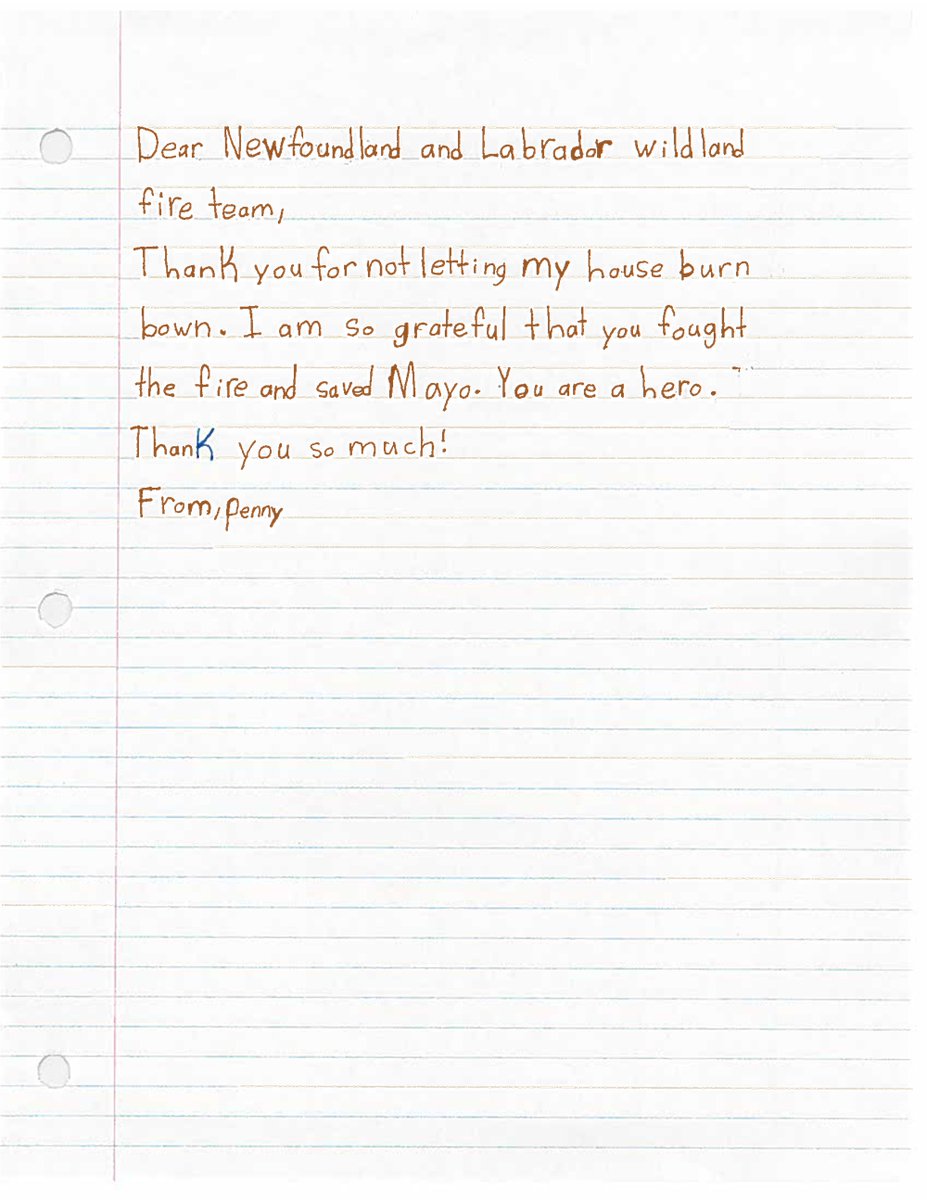 Dear Newfoundland and Labrador wildland
fire team,
Thank you for not letting my house burn
bown. I am so grateful that you fought
the fire and saved Mayo. You are a hero.
Thank you so much!
From, penny